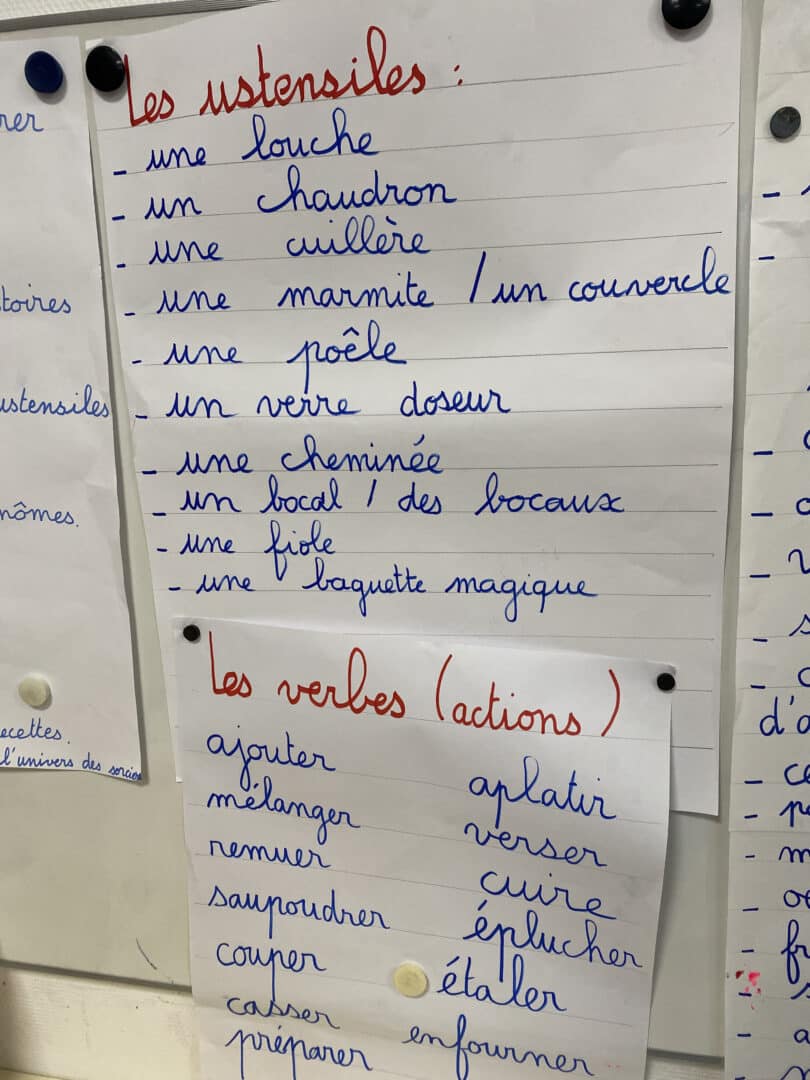 Les ustensiles :
- une louche
- un chaudron
- une cuillère
- une marmite / un couvercle
- une poêle
- un verre doseur
- une cheminée
- un bocal / des bocaux
- une fiole
- une baguette magique
Les verbes (actions)
ajouter
mélanger
remuer
saupoudrer
couper
casser
préparer
aplatir
verser
cuire
éplucher
étaler
enfourner
rer
toires
ustensiles
nômes.
ecettes.
l'univers des
d'a